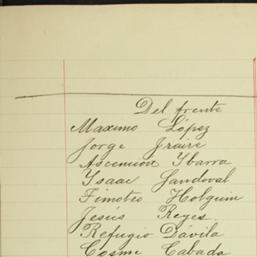 Del frente
Maximo López
Jorge Fraire
Ascencion Ybarra
Ysaac Sandoval
Timoteo Holguin
Jesús Reyes.
Refugio Dávila
Cosme Cabada